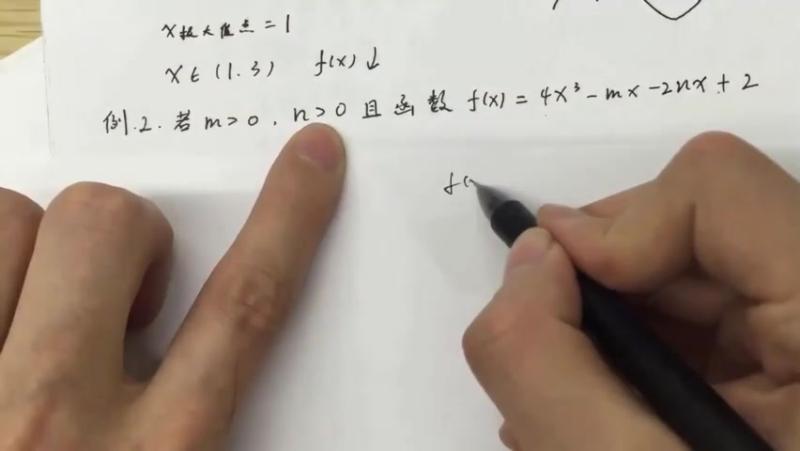 x极大值点 = 1
x∈(1.3) f(x)↓
例.2. 若 m>0 . n>0 且 函数 f(x) = 4x³ - mx - 2nx + 2
f(